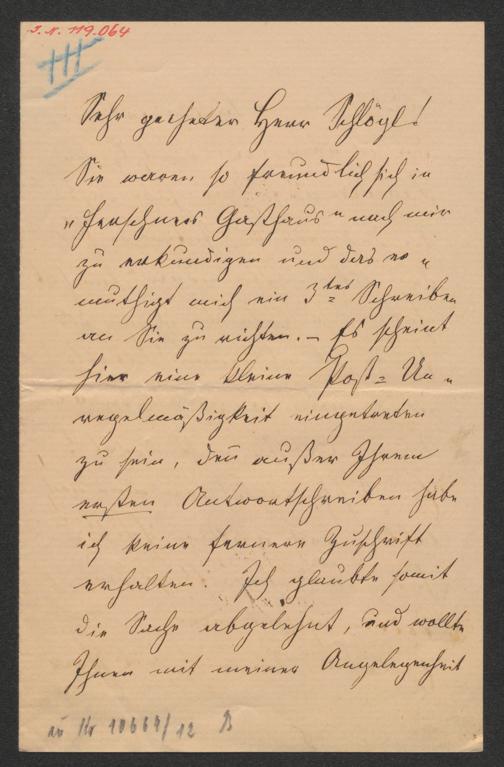 J. N. 119.064
III
Sehr geehrter Herr Schlögl!
Sie waren so freundlich sich in
„Jerschners Gasthaus“ nach mir
zu erkundigen und das er„
muthigt mich ein 3tes Schreiben
an Sie zu richten. – Es scheint
hier eine kleine Post= Un„
regelmäßigkeit eingetreten
zu sein, den außer Ihrem
ersten Antwortschreiben habe
ich keine fernere Zuschrift
erhalten. Ich glaubte somit
die Sache abgelehnt, und wollte
Ihnen mit meiner Angelegenheit
zu Nr 10664/12 B